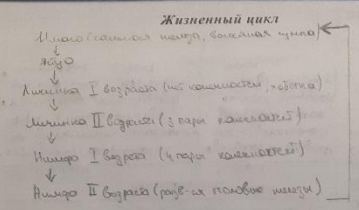 Жизненный цикл
Имаго (сальная железа, волосяная сумка)
Яйцо
Личинка I возраста (нет конечностей,
Личинка II возраста (3 пары конечностей)
Нимфа I возраста (4 пары конечностей)
Нимфа II возраста (разв-ся половые железы)